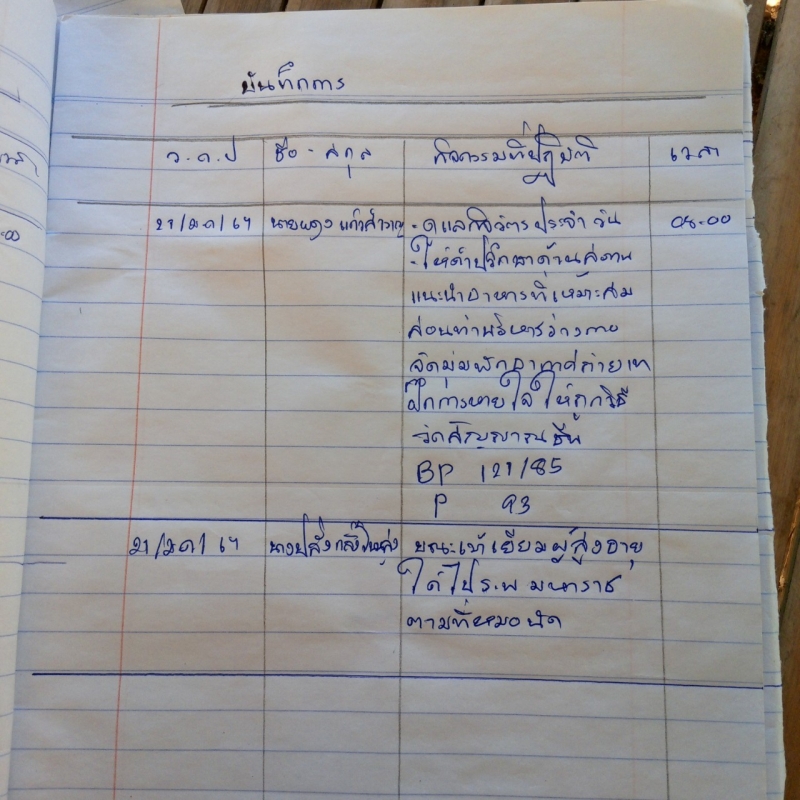 บันทึกการ
ว.ด.ป ชื่อ - สกุล กิจกรรมที่ปฏิบัติ เวลา
21/ม.ค/69 นาย แก้วสำราญ - ดูแลกิจวัตรประจำวัน 08.00
- ให้คำปรึกษาด้าน
แนะนำอาหารที่เหมาะสม
สอนท่าบริหารร่างกาย
จัดมุมพักอากาศถ่ายเท
ฝึกการหายใจให้ถูกวิธี
วัดสัญญาณชีพ
BP 121/85
P 93
21/ม.ค/69 ขณะเข้าเยี่ยมผู้สูงอายุ
ได้ไป ร.พ มหาราช
ตามที่หมอนัด